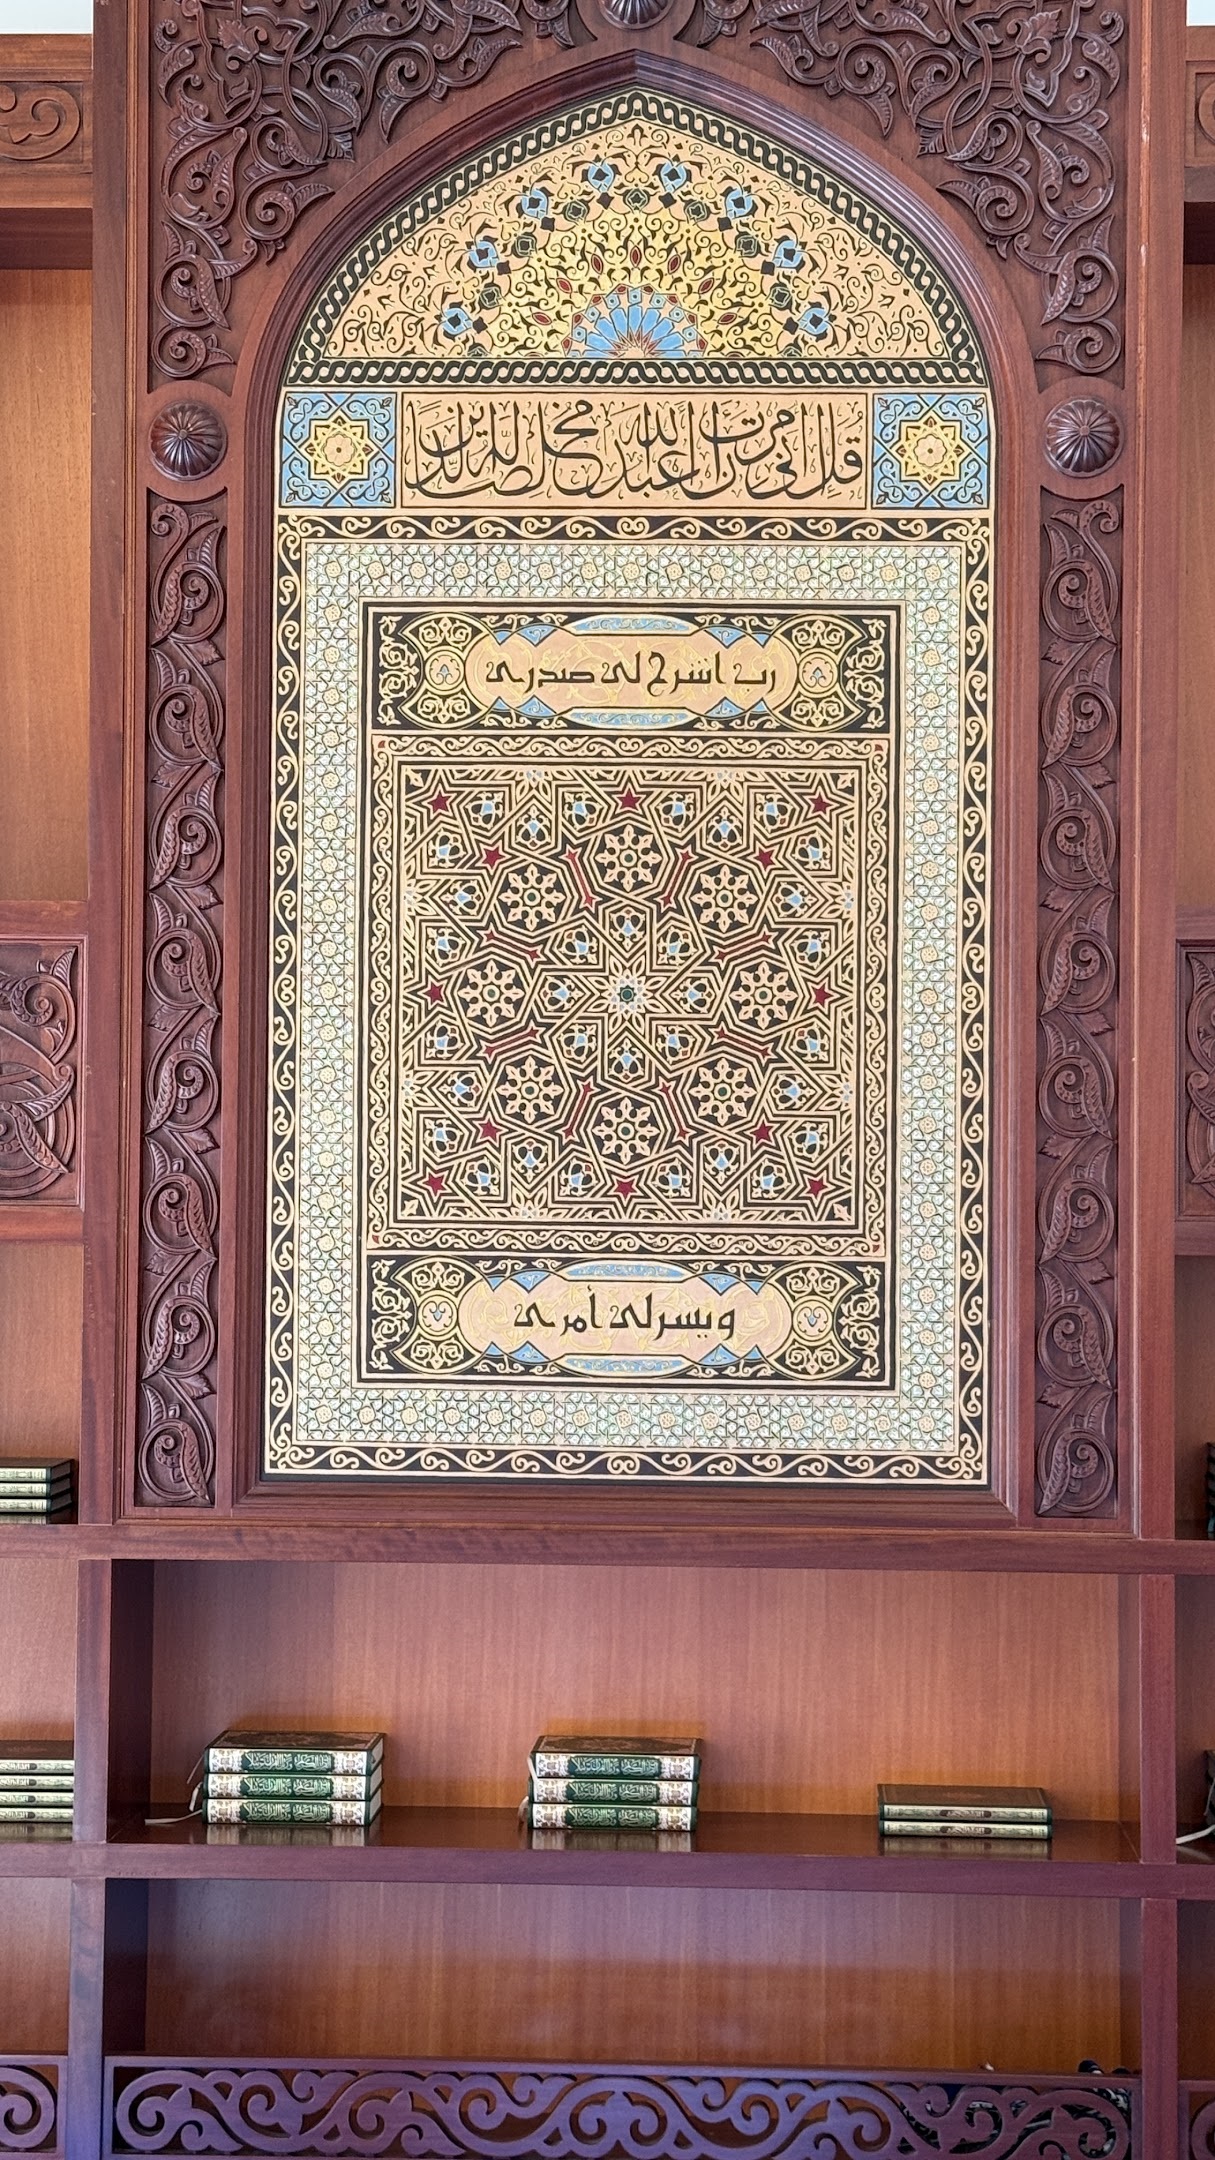 قُلْ إِنِّي أُمِرْتُ أَنْ أَعْبُدَ اللَّهَ مُخْلِصًا لَهُ الدِّينَ
رب اشرح لى صدرى
ويسر لى أمرى